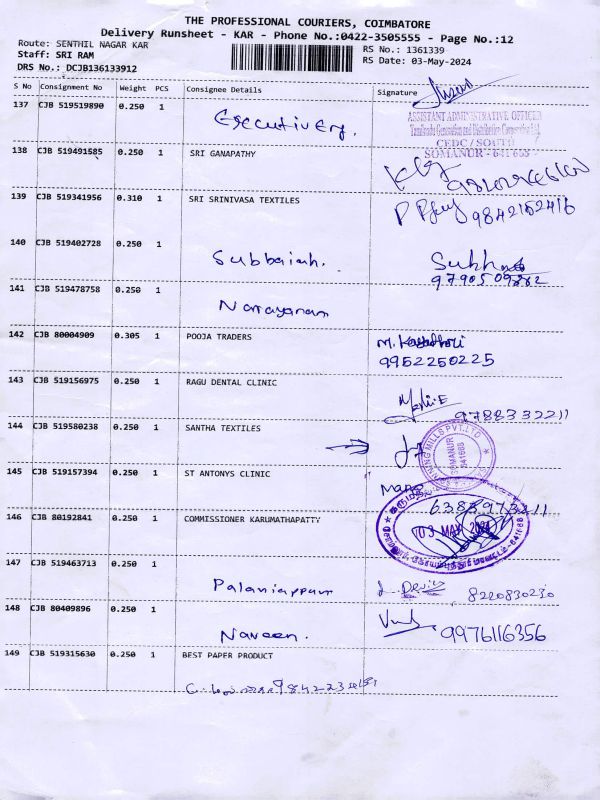 THE PROFESSIONAL COURIERS, COIMBATORE
Delivery Runsheet - KAR - Phone No.:0422-3505555 - Page No.:12
Route: SENTHIL NAGAR KAR
RS No.: 1361339
Staff: SRI RAM
RS Date: 03-May-2024
DRS No.: DCJB136133912
S No Consignment No Weight PCS Consignee Details Signature
137 CJB 519519890 0.250 1
ASSISTANT ADMINISTRATIVE OFFICER
Tamilnadu Generation and Distribution Corporation Ltd.
CEDC / SOUTH
SOMANUR - 641 668
138 CJB 519491585 0.250 1 SRI GANAPATHY
139 CJB 519341956 0.310 1 SRI SRINIVASA TEXTILES
9842152416
140 CJB 519402728 0.250 1
Subbaiah.
141 CJB 519478758 0.250 1
Narrayanan
142 CJB 80004909 0.305 1 POOJA TRADERS
9952250225
143 CJB 519156975 0.250 1 RAGU DENTAL CLINIC
9788332211
144 CJB 519580238 0.250 1 SANTHA TEXTILES
SOMANUR
641668
MILLS PVT.LTD
145 CJB 519157394 0.250 1 ST ANTONYS CLINIC
146 CJB 80192841 0.250 1 COMMISSIONER KARUMATHAPATTY
03 MAY 2024
147 CJB 519463713 0.250 1
Palaniappan
8220830230
148 CJB 80409896 0.250 1
Naveen.
9976116356
149 CJB 519315630 0.250 1 BEST PAPER PRODUCT